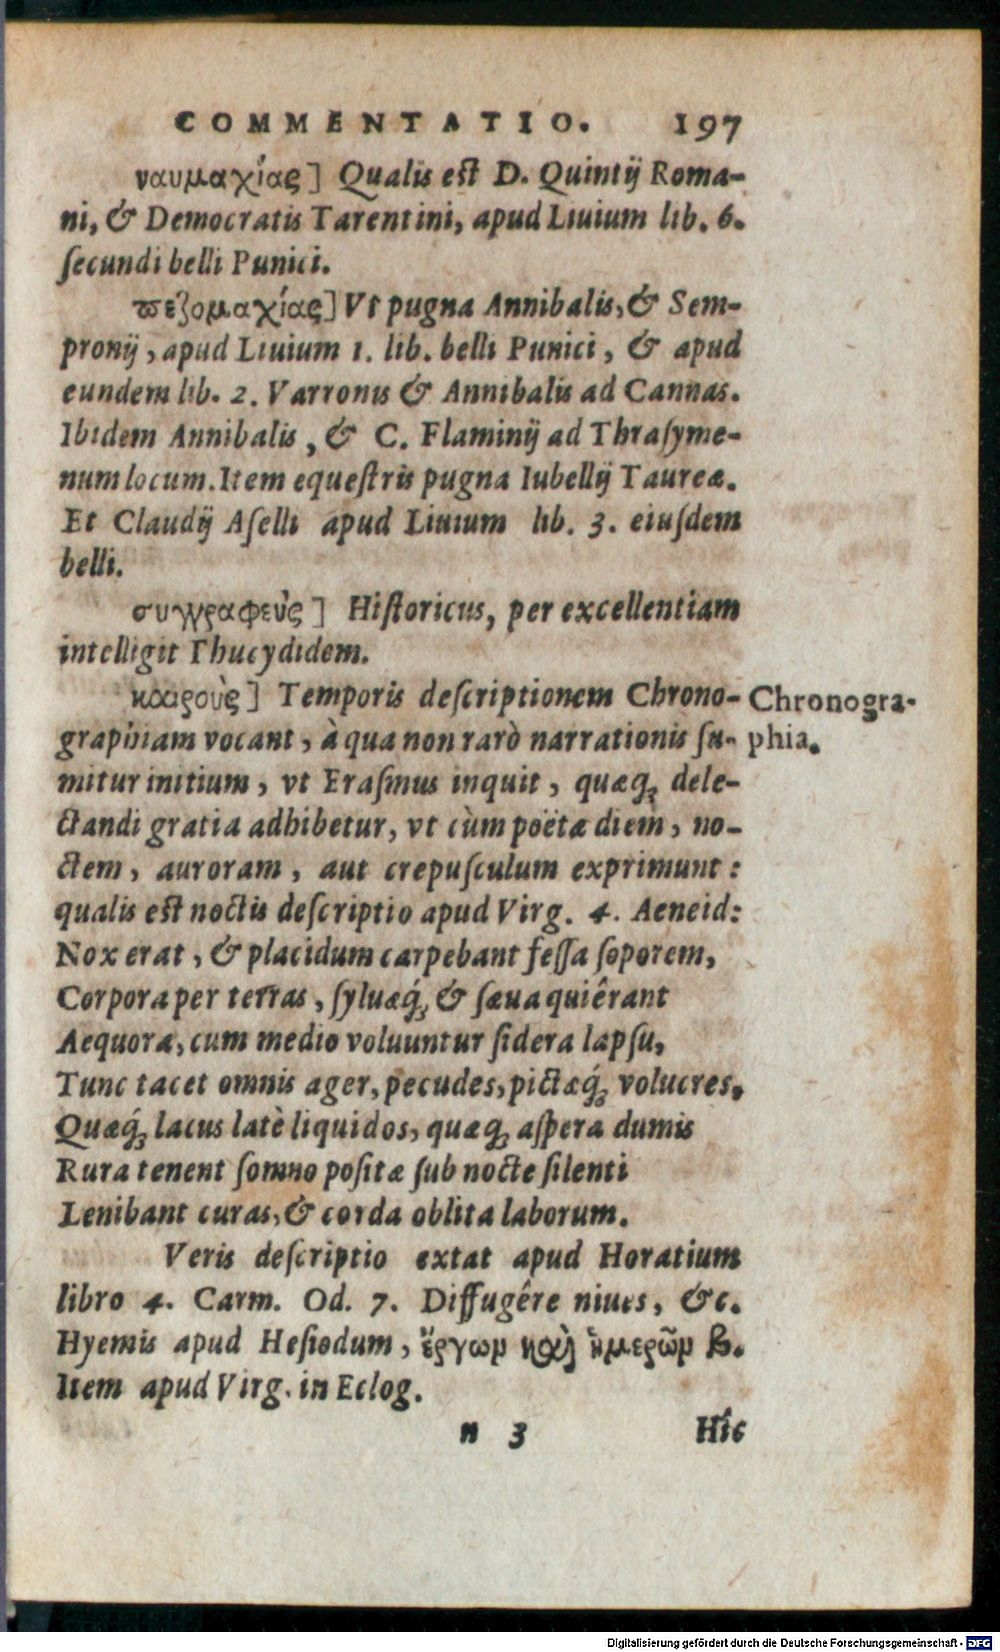 COMMENTATIO. 197
ναυμαχίας] Qualis est D. Quintij Roma-
ni, & Democratis Tarentini, apud Liuium lib. 6.
secundi belli Punici.
πεζομαχίας] Vt pugna Annibalis, & Sem-
pronij, apud Liuium 1. lib. belli Punici, & apud
eundem lib. 2. Varronis & Annibalis ad Cannas.
Ibidem Annibalis, & C. Flaminij ad Thrasyme-
num locum. Item equestris pugna Iubellij Taureæ.
Et Claudij Aselli apud Liuium lib. 3. eiusdem
belli.
συγγραφεὺς] Historicus, per excellentiam
intelligit Thucydidem.
καιροὺς] Temporis descriptionem Chrono-
Chronogra-
graphiam vocant, à qua non rarò narrationis su-
phia.
mitur initium, vt Erasmus inquit, quæq́ꝫ dele-
ctandi gratia adhibetur, vt cùm poëtæ diem, no-
ctem, auroram, aut crepusculum exprimunt:
qualis est noctis descriptio apud Virg. 4. Aeneid:
Nox erat, & placidum carpebant fessa soporem,
Corpora per terras, syluæq́ꝫ & sæua quiêrant
Aequora, cum medio voluuntur sidera lapsu,
Tunc tacet omnis ager, pecudes, pictæq́ꝫ volucres,
Quæq́ꝫ lacus latè liquidos, quæqꝫ aspera dumis
Rura tenent somno positæ sub nocte silenti
Lenibant curas, & corda oblita laborum.
Veris descriptio extat apud Horatium
libro 4. Carm. Od. 7. Diffugêre niues, &c.
Hyemis apud Hesiodum, ἔργων καὶ ἡμερῶν β.
Item apud Virg. in Eclog.
n 3 Hîc
Digitalisierung gefördert durch die Deutsche Forschungsgemeinschaft - DFG